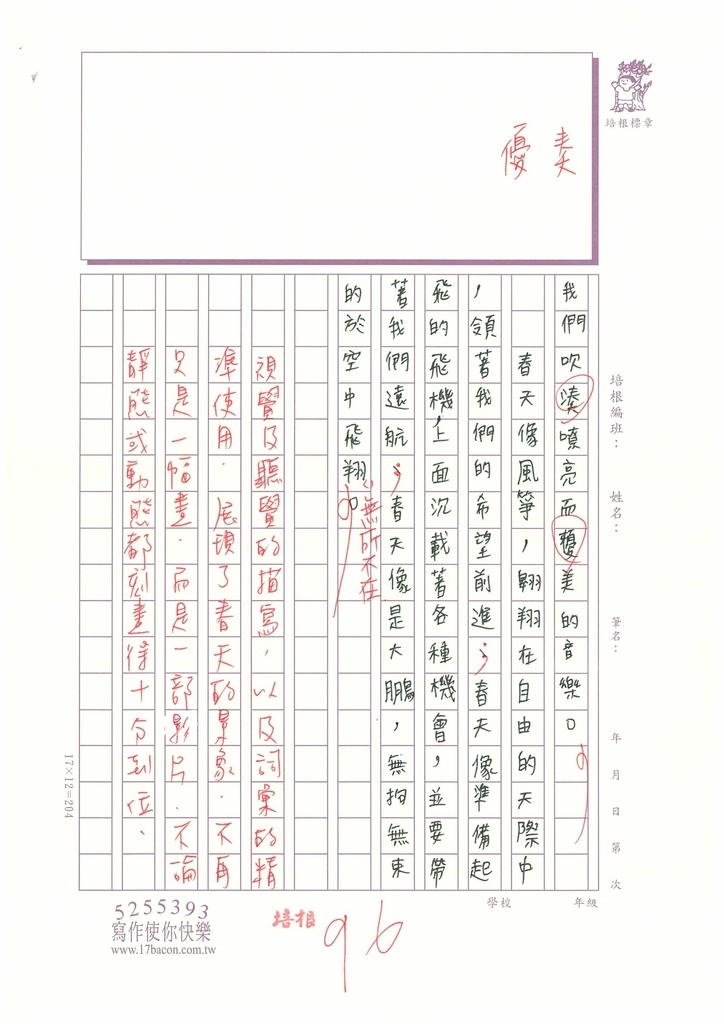 培根標章
優 奏
我們吹湊嘹亮而優美的音樂。
春天像風箏，翱翔在自由的天際中
，領著我們的希望前進；春天像準備起
飛的飛機，上面沉載著各種機會，並要帶
著我們遠航；春天像是大鵬，無拘無束
的於空中飛翔。
無所不在
視覺及聽覺的描寫，以及詞彙的精
準使用．展現了春天的景象．不再
只是一幅畫．而是一部影片．不論
靜態或動態都刻畫得十分到位、
培根編班：
姓名：
筆名：
年 月 日 第 次
17×12=204
學校 年級
5255393
寫作使你快樂
www.17bacon.com.tw
培根
96